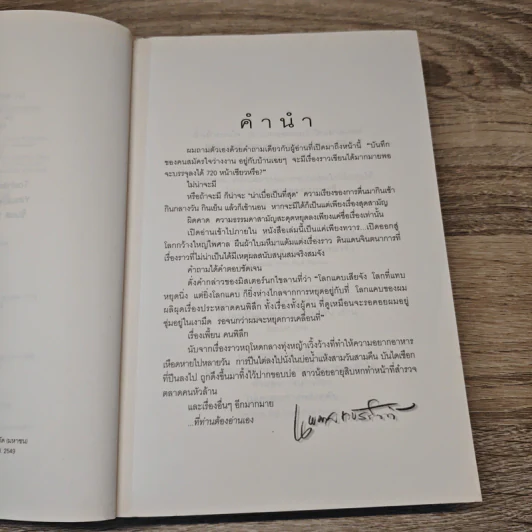 คำนำ
ผมถามตัวเองด้วยคำถามเดียวกับผู้อ่านที่เปิดมาถึงหน้านี้ "บันทึก
ของคนสมัครใจว่างงาน อยู่กับบ้านเฉยๆ จะมีเรื่องราวเขียนได้มากมายพอ
จะบรรจุลงได้ 720 หน้าเชียวหรือ?"
ไม่น่าจะมี
หรือถ้าจะมี ก็น่าจะ "น่าเบื่อเป็นที่สุด" ความเรียงของการตื่นมากินเช้า
กินกลางวัน กินเย็น แล้วก็เข้านอน หากจะมีได้ก็เป็นแค่เพียงเรื่องสุดสามัญ
ผิดคาด ความธรรมดาสามัญสะดุดหยุดลงเพียงแค่ชื่อเรื่องเท่านั้น
เปิดอ่านเข้าไปภายใน หนังสือเล่มนี้เป็นแค่เพียงทวาร...เปิดออกสู่
โลกกว้างใหญ่ไพศาล ยืนผ้าใบผืนมาแต้มแต่งเรื่องราว ดินแดนจินตนาการที่
เรื่องราวที่ไม่น่าเป็นได้มีเหตุผลสนับสนุนสมจริงสมจัง
คำถามได้คำตอบชัดเจน
ดั่งคำกล่าวของมิสเตอร์นกไขลานที่ว่า "โลกแคบเสียจัง โลกที่แทบ
หยุดนิ่ง แต่ยิ่งโลกแคบ ก็ยิ่งห่างไกลจากการหยุดอยู่กับที่ โลกแคบของผม
ผลิผุดเรื่องประหลาดคนพิลึก ทั้งเรื่องทั้งผู้คน ที่ดูเหมือนจะรอคอยผมอยู่
ซุ่มอยู่ในเงามืด รอจนกว่าผมจะหยุดการเคลื่อนที่"
เรื่องเพี้ยน คนพิลึก
นับจากเรื่องราวหฤโหดกลางทุ่งหญ้าเวิ้งว้างที่ทำให้ความอยากอาหาร
เหือดหายไปหลายวัน การปีนไต่ลงไปนั่งในบ่อน้ำแห้งสามวันสามคืน บันไดเชือก
ที่ปีนลงไป ถูกดึงขึ้นมาทิ้งไว้ปากขอบบ่อ สาวน้อยอายุสิบหกทำหน้าที่สำรวจ
ตลาดคนหัวล้าน
และเรื่องอื่นๆ อีกมากมาย
...ที่ท่านต้องอ่านเอง
(มหาชน)
2549